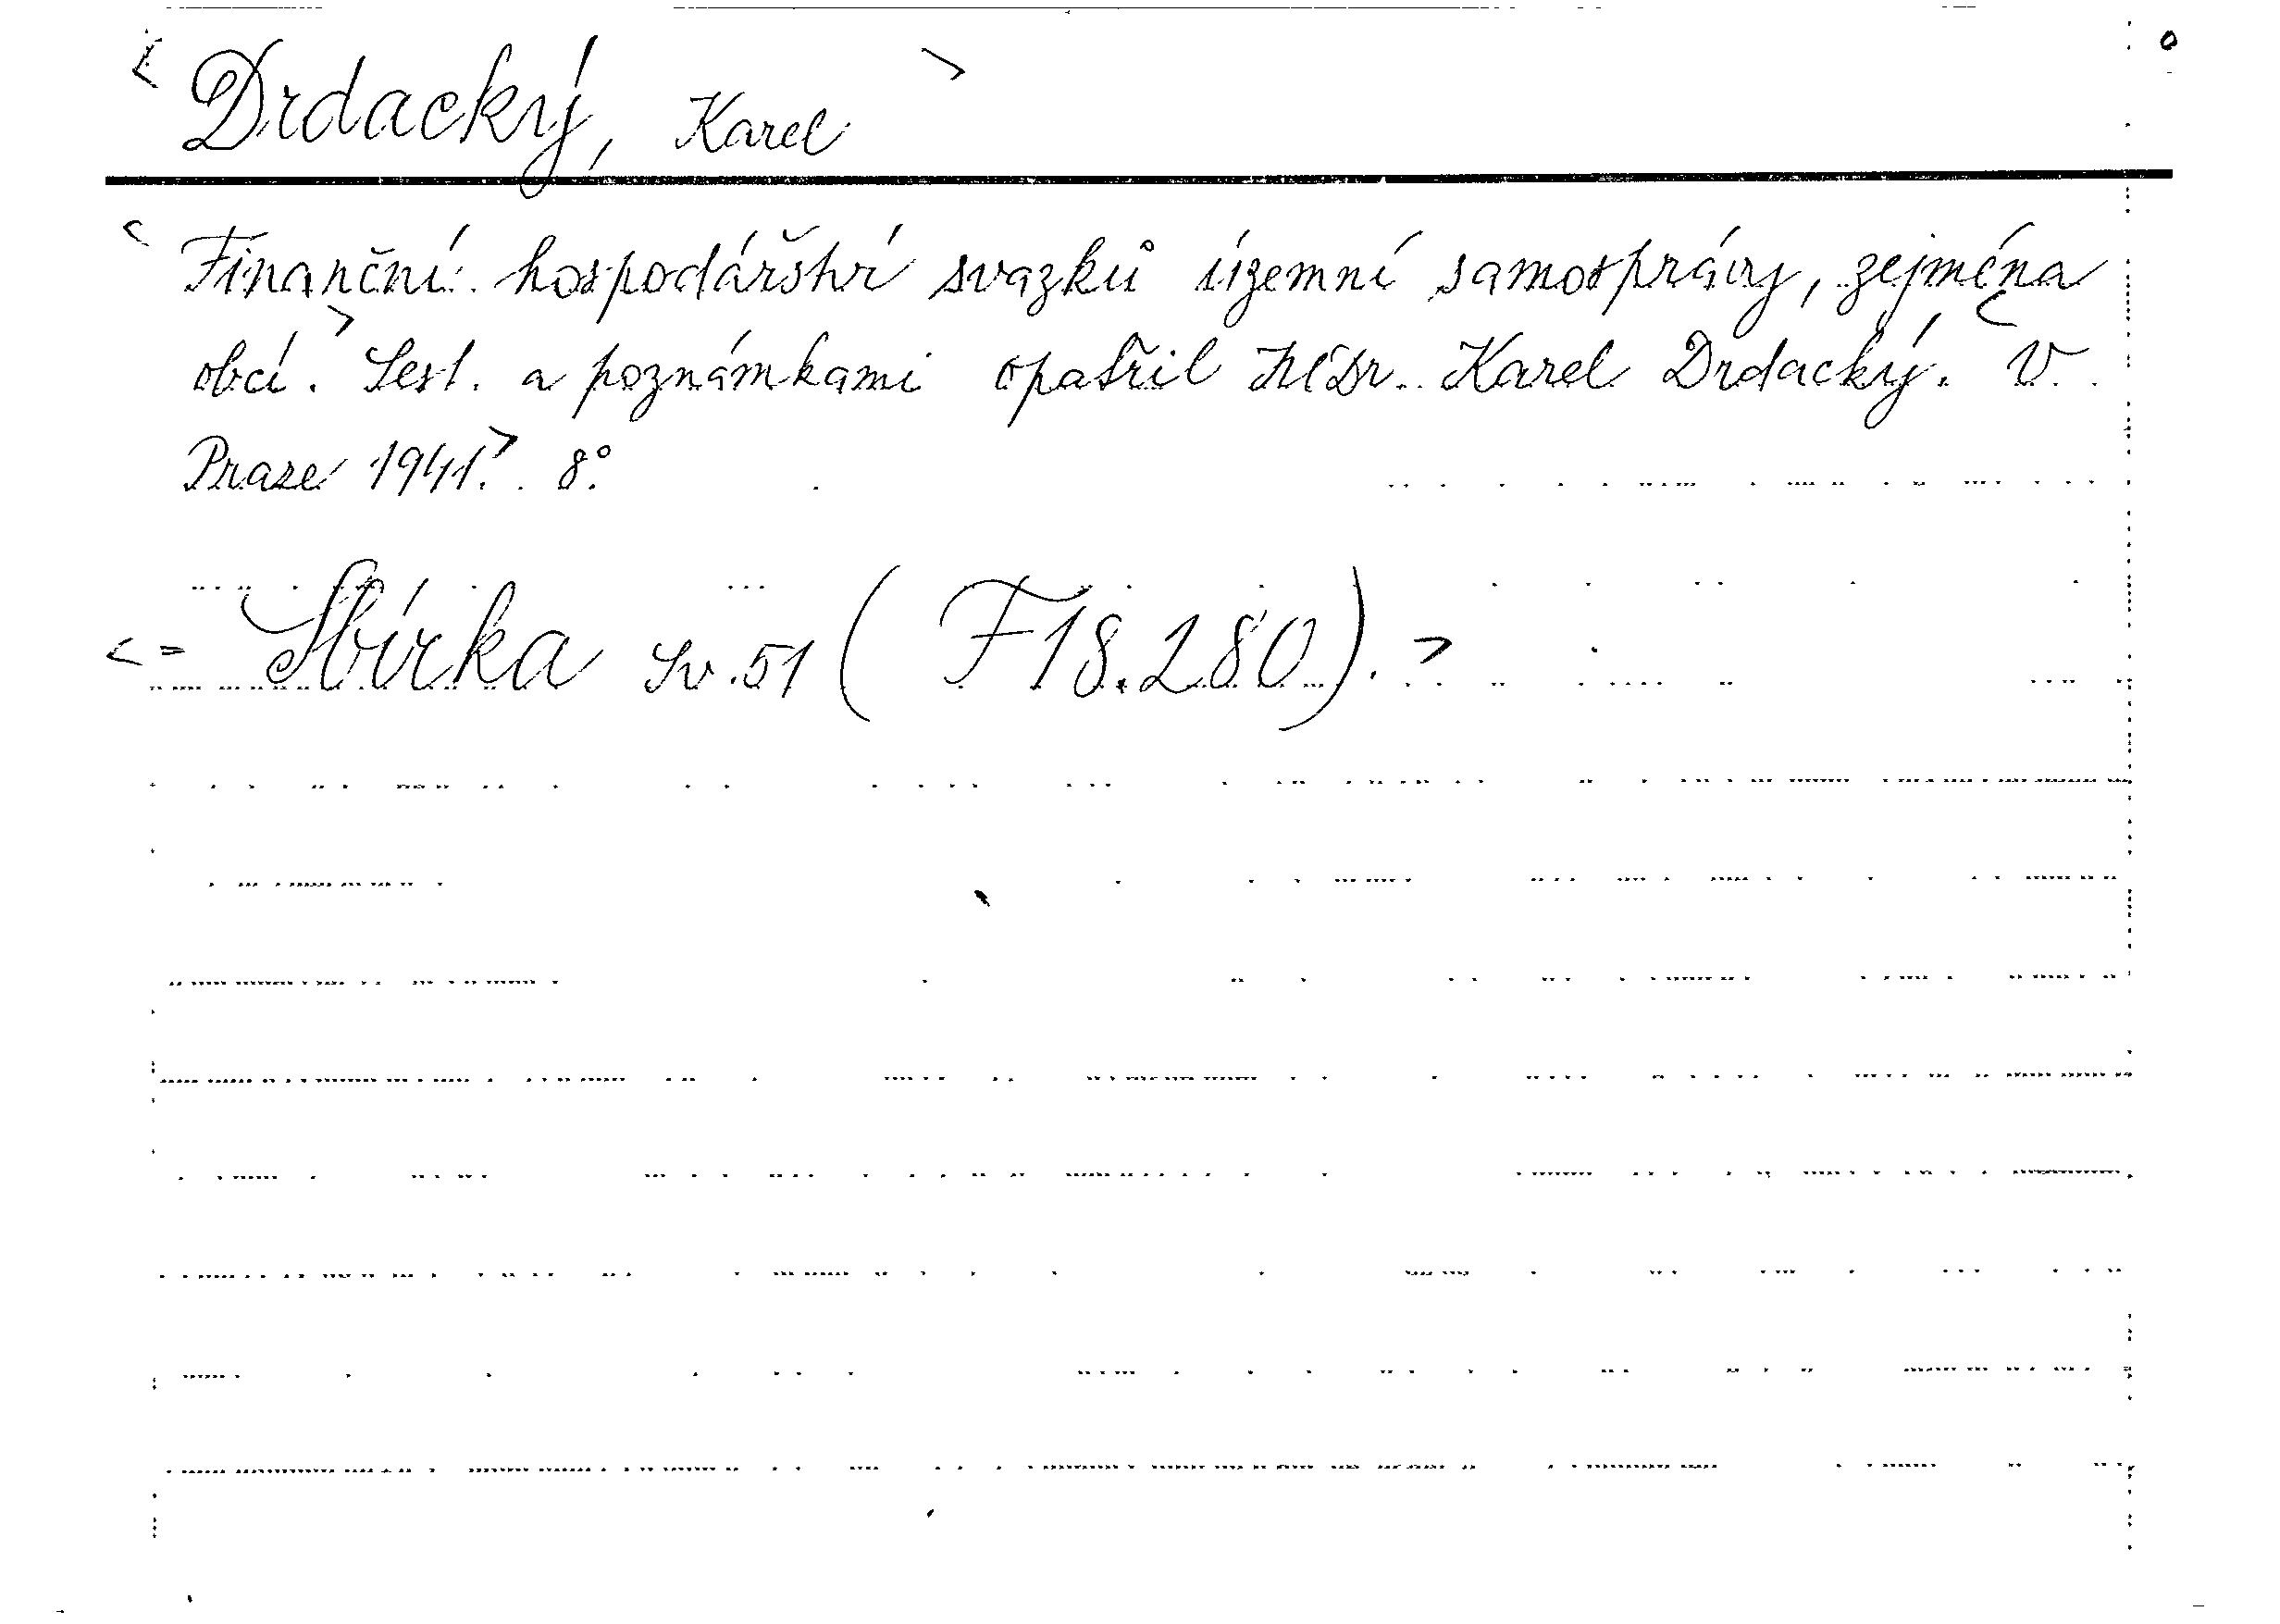 < Drdacký, Karel >
< Finanční hospodářství svazků územní samosprávy, zejména
obcí. > Sest. a poznámkami opatřil JUDr. Karel Drdacký. < V
Praze 1941. > 8°.
< = Sbírka Sv. 51 ( F 18.280 ). >